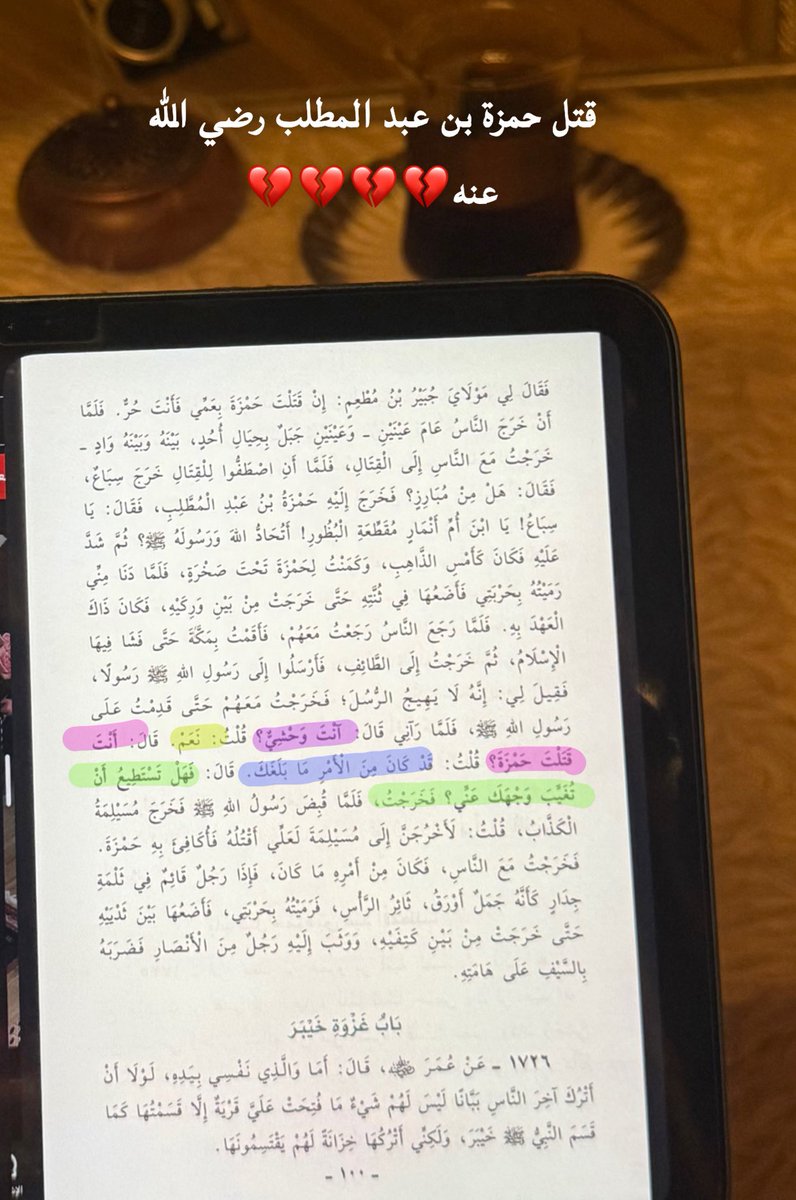 قتل حمزة بن عبد المطلب رضي الله
عنه💔💔💔💔
فَقَالَ لِي مَوْلَايَ جُبَيْرُ بْنُ مُطْعِمٍ: إِنْ قَتَلْتَ حَمْزَةَ بِعَمِّي فَأَنْتَ حُرٌّ. فَلَمَّا
أَنْ خَرَجَ النَّاسُ عَامَ عَيْنَيْنِ - وَعَيْنَيْنِ جَبَلٌ بِحِيَالِ أُحُدٍ، بَيْنَهُ وَبَيْنَهُ وَادٍ -
خَرَجْتُ مَعَ النَّاسِ إِلَى الْقِتَالِ، فَلَمَّا أَنِ اصْطَفُّوا لِلْقِتَالِ خَرَجَ سِبَاعٌ،
فَقَالَ: هَلْ مِنْ مُبَارِزٍ؟ فَخَرَجَ إِلَيْهِ حَمْزَةُ بْنُ عَبْدِ الْمُطَّلِبِ، فَقَالَ: يَا
سِبَاعُ! يَا ابْنَ أُمِّ أَنْمَارٍ مُقَطِّعَةِ الْبُظُورِ! أَتُحَادُّ اللهَ وَرَسُولَهُ ﷺ؟ ثُمَّ شَدَّ
عَلَيْهِ فَكَانَ كَأَمْسِ الذَّاهِبِ، وَكَمَنْتُ لِحَمْزَةَ تَحْتَ صَخْرَةٍ، فَلَمَّا دَنَا مِنِّي
رَمَيْتُهُ بِحَرْبَتِي فَأَضَعُهَا فِي ثُنَّتِهِ حَتَّى خَرَجَتْ مِنْ بَيْنِ وَرِكَيْهِ، فَكَانَ ذَاكَ
الْعَهْدَ بِهِ. فَلَمَّا رَجَعَ النَّاسُ رَجَعْتُ مَعَهُمْ، فَأَقَمْتُ بِمَكَّةَ حَتَّى فَشَا فِيهَا
الْإِسْلَامُ، ثُمَّ خَرَجْتُ إِلَى الطَّائِفِ، فَأَرْسَلُوا إِلَى رَسُولِ اللهِ ﷺ رَسُولًا،
فَقِيلَ لِي: إِنَّهُ لَا يَهِيجُ الرُّسُلَ؛ فَخَرَجْتُ مَعَهُمْ حَتَّى قَدِمْتُ عَلَى
رَسُولِ اللهِ ﷺ، فَلَمَّا رَآنِي قَالَ: آنْتَ وَحْشِيٌّ؟ قُلْتُ: نَعَمْ. قَالَ: أَنْتَ
قَتَلْتَ حَمْزَةَ؟ قُلْتُ: قَدْ كَانَ مِنَ الْأَمْرِ مَا بَلَغَكَ. قَالَ: فَهَلْ تَسْتَطِيعُ أَنْ
تُغَيِّبَ وَجْهَكَ عَنِّي؟ فَخَرَجْتُ، فَلَمَّا قُبِضَ رَسُولُ اللهِ ﷺ فَخَرَجَ مُسَيْلِمَةُ
الْكَذَّابُ، قُلْتُ: لَأَخْرُجَنَّ إِلَى مُسَيْلِمَةَ لَعَلِّي أَقْتُلُهُ فَأُكَافِئَ بِهِ حَمْزَةَ.
فَخَرَجْتُ مَعَ النَّاسِ، فَكَانَ مِنْ أَمْرِهِ مَا كَانَ، فَإِذَا رَجُلٌ قَائِمٌ فِي ثَلْمَةِ
جِدَارٍ كَأَنَّهُ جَمَلٌ أَوْرَقُ، ثَائِرُ الرَّأْسِ، فَرَمَيْتُهُ بِحَرْبَتِي، فَأَضَعُهَا بَيْنَ ثَدْيَيْهِ
حَتَّى خَرَجَتْ مِنْ بَيْنِ كَتِفَيْهِ، وَوَثَبَ إِلَيْهِ رَجُلٌ مِنَ الْأَنْصَارِ فَضَرَبَهُ
بِالسَّيْفِ عَلَى هَامَتِهِ.
بَابُ غَزْوَةِ خَيْبَرَ
١٧٢٦ - عَنْ عُمَرَ رضي الله عنه، قَالَ: أَمَا وَالَّذِي نَفْسِي بِيَدِهِ، لَوْلَا أَنْ
أَتْرُكَ آخِرَ النَّاسِ بَبَّانًا لَيْسَ لَهُمْ شَيْءٌ مَا فُتِحَتْ عَلَيَّ قَرْيَةٌ إِلَّا قَسَمْتُهَا كَمَا
قَسَمَ النَّبِيُّ ﷺ خَيْبَرَ، وَلَكِنِّي أَتْرُكُهَا خِزَانَةً لَهُمْ يَقْتَسِمُونَهَا.
- ١٠٠ -